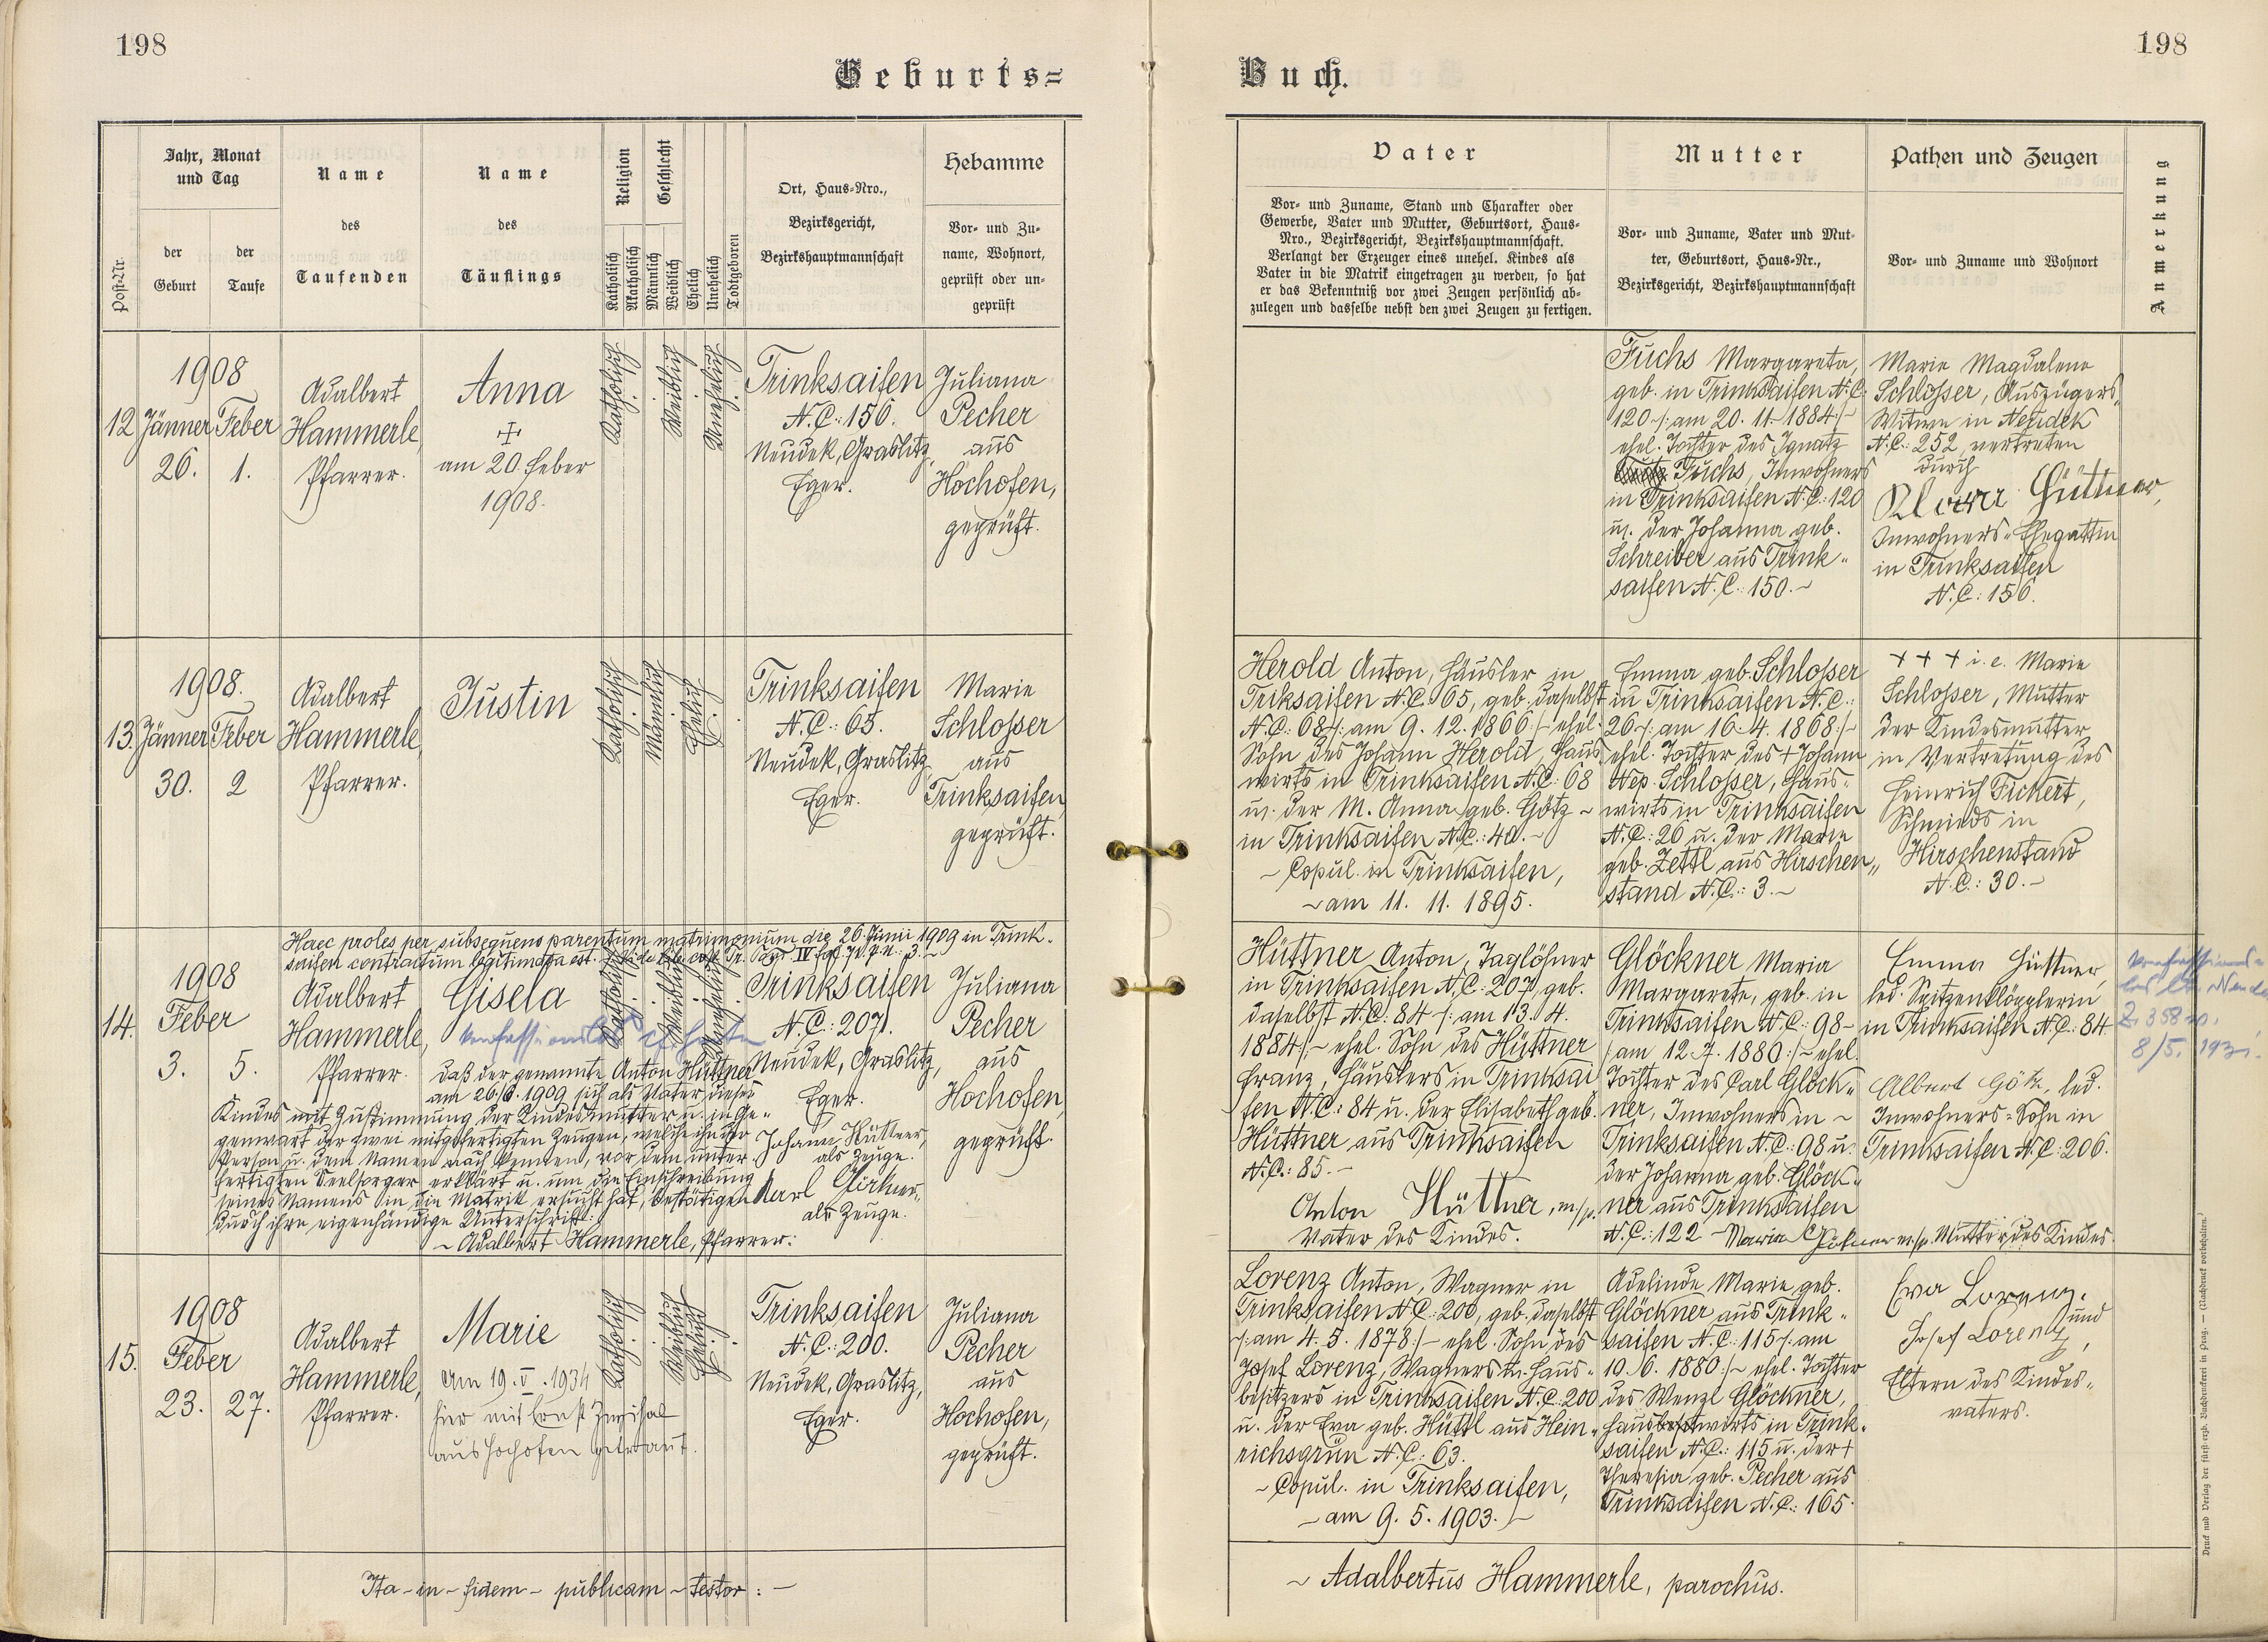 198
Geburts=
Jahr, Monat
und Tag
Name
Name
Religion
Geschlecht
Hebamme
Post-Nr.
der
Geburt
der
Taufe
des
Taufenden
des
Täuflings
Katholisch
Akatholisch
Männlich
Weiblich
Ehelich
Unehelich
Todtgeboren
Ort, Haus-Nro.,
Bezirksgericht,
Bezirkshauptmannschaft
Vor- und Zu-
name, Wohnort,
geprüft oder un-
geprüft
12
1908
Jänner Feber
26. 1.
Adalbert
Hammerle,
Pfarrer.
Anna
†
am 20. Feber
1908.
Katholisch
Weiblich
Unehelich
Trinksaifen
N.C.: 156.
Neudek, Graslitz,
Eger.
Juliana
Pecher
aus
Hochofen,
geprüft.
13.
1908.
Jänner Feber
30. 2
Adalbert
Hammerle,
Pfarrer.
Justin
Katholisch
Männlich
Ehelich
Trinksaifen
N.C.: 65.
Neudek, Graslitz,
Eger.
Marie
Schlosser
aus
Trinksaifen,
geprüft.
Haec proles per subsequens parentum matrimonium die 26. Junii 1909 in Trink-
saifen contractum legitimata est.
14.
1908
Feber
3. 5.
Adalbert
Hammerle,
Pfarrer.
Gisela
Katholisch
Weiblich
Unehelich
Trinksaifen
N.C.: 207.
Neudek, Graslitz,
Eger.
Juliana
Pecher
aus
Hochofen,
geprüft.
daß der genannte Anton Hüttner
am 26/6. 1909 sich als Vater dieses
Kindes mit Zustimmung der Kindesmutter u. in Ge-
genwart der zwei mitgefertigten Zeugen, welche ihn der
Person u. dem Namen nach kennen, vor dem unter-
fertigten Seelsorger erklärt u. um die Einschreibung
seines Namens in die Matrik ersucht hat, bestätigen
durch ihre eigenhändige Unterschrift:
~ Adalbert Hammerle, Pfarrer:
Johann Hüttner,
als Zeuge.
Karl
als Zeuge.
15.
1908
Feber
23. 27.
Adalbert
Hammerle,
Pfarrer.
Marie
Am 19. V. 1934
hier mit Ernst
aus Hochofen getraut.
Katholisch
Weiblich
Ehelich
Trinksaifen
N.C.: 200.
Neudek, Graslitz,
Eger.
Juliana
Pecher
aus
Hochofen,
geprüft.
Ita - in - fidem - publicam - testor: -
198
Buch.
Vater
Mutter
Pathen und Zeugen
Anmerkung
Vor- und Zuname, Stand und Charakter oder
Gewerbe, Vater und Mutter, Geburtsort, Haus-
Nro., Bezirksgericht, Bezirkshauptmannschaft.
Verlangt der Erzeuger eines unehel. Kindes als
Vater in die Matrik eingetragen zu werden, so hat
er das Bekenntniß vor zwei Zeugen persönlich ab-
zulegen und dasselbe nebst den zwei Zeugen zu fertigen.
Vor- und Zuname, Vater und Mut-
ter, Geburtsort, Haus-Nr.,
Bezirksgericht, Bezirkshauptmannschaft
Vor- und Zuname und Wohnort
Fuchs Margareta,
geb. in Trinksaifen N.C.:
120 /: am 20. 11. 1884 :/
ehel. Tochter des Ignatz
Fuchs, Inwohners
in Trinksaifen N.C.: 120
u. der Johanna geb.
Schreiber aus Trink-
saifen N.C.: 150. ~
Marie Magdalene
Schlosser, Auszügers-
Witwe in Neudek
N.C.: 252, vertreten
durch
Hüttner,
Inwohners-Ehegattin
in Trinksaifen
N.C.: 156.
Herold Anton, Häusler in
Triksaifen N.C. 65, geb. daselbst
N.C.: 68 /: am 9. 12. 1866 :/ ehel.
Sohn des Johann Herold, Haus-
wirts in Trinksaifen N.C.: 68
u. der M. Anna geb. Götz ~
in Trinksaifen N.C.: 40. ~
~ Copul. in Trinksaifen,
~ am 11. 11. 1895.
Emma geb. Schlosser
in Trinksaifen N.C.:
26 /: am 16. 4. 1868 :/
ehel. Tochter des † Johann
Nep. Schlosser, Haus-
wirts in Trinksaifen
N.C.: 26 u. der Marie
geb. Zettl aus Hirschen-
stand N.C.: 3. ~
+ + + i. e. Marie
Schlosser, Mutter
der Kindesmutter
in Vertretung des
Heinrich Fickert,
Schmieds in
Hirschenstand
N.C.: 30. ~
Hüttner Anton, Taglöhner
in Trinksaifen N.C.: 207, geb.
daselbst N.C.: 84 /: am 13. 4.
1884 :/ ~ ehel. Sohn des Hüttner
Franz, Häuslers in Trinksai
fen N.C.: 84 u. der Elisabeth geb.
Hüttner aus Trinksaifen
N.C.: 85. ~
Anton Hüttner, m/p.
Vater des Kindes.
Glöckner Maria
Margarete, geb. in
Trinksaifen N.C.: 98 -
/: am 12. 7. 1880 :/ ~ ehel.
Tochter des Carl Glöck-
ner, Inwohners in ~
Trinksaifen N.C.: 98 u.
der Johanna geb. Glöck-
ner aus Trinksaifen
N.C.: 122 ~ Maria m/p. Mutter des Kindes.
Emma Hüttner,
led. Spitzenklöpplerin
in Trinksaifen N.C.: 84
Albert Götz, led.
Inwohners-Sohn in
Trinksaifen N.C.: 206.
8/5. 1931.
Lorenz Anton, Wagner in
Trinksaifen N.C.: 200, geb. daselbst
/: am 4. 5. 1878 :/ ehel. Sohn des
Josef Lorenz, Wagners u. Haus-
besitzers in Trinksaifen N.C. 200
u. der Eva geb. Hüttl aus Hein-
richsgrün N.C.: 63.
~ Copul. in Trinksaifen,
~ am 9. 5. 1903.
Adelinde Marie geb.
Glöckner aus Trink-
saifen N.C.: 115 /: am
10. 6. 1880 :/ ~ ehel. Tochter
des Wenzl Glöckner,
Hauswirts in Trink-
saifen N.C.: 115 u. der †
Theresia geb. Pecher aus
Trinksaifen N.C.: 165.
Eva Lorenz
und
Josef Lorenz,
Eltern des Kindes-
vaters.
~ Adalbertus Hammerle, parochus.
Druck und Verlag der fürst-erzb. Buchdruckerei in Prag. — (Nachdruck vorbehalten.)